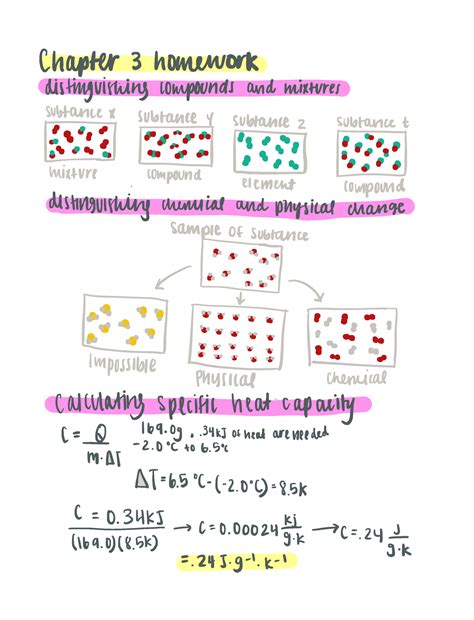 Chapter 3 homework
distinguishing compounds and mixtures
subtance x subtance y subtance z subtance t
mixture compound element compound
distinguishing chemical and physical change
sample of subtance
impossible physical chemical
calculating specific heat capacity
C = Q / m·ΔT 169.0g, .34kJ of heat are needed
-2.0°C to 6.5°C
ΔT = 6.5°C - (-2.0°C) = 8.5k
C = 0.34kJ / (169.0)(8.5k) → C = 0.00024 kj / g·k → C = .24 J / g·k
= .24 J·g⁻¹·k⁻¹